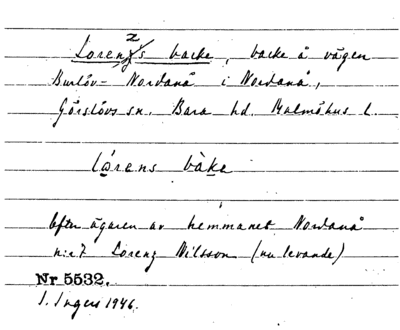 z
Lorenz's backe, backe å vägen
Burlöv- Nordanå i Nordanå,
Görslövs sn. Bara hd. Malmöhus l.
lårens bàke
Efter ägaren av hemmanet Nordanå
n:r 7 Lorenz Nilsson (nu levande)
Nr 5532.
I. Ingers 1946.